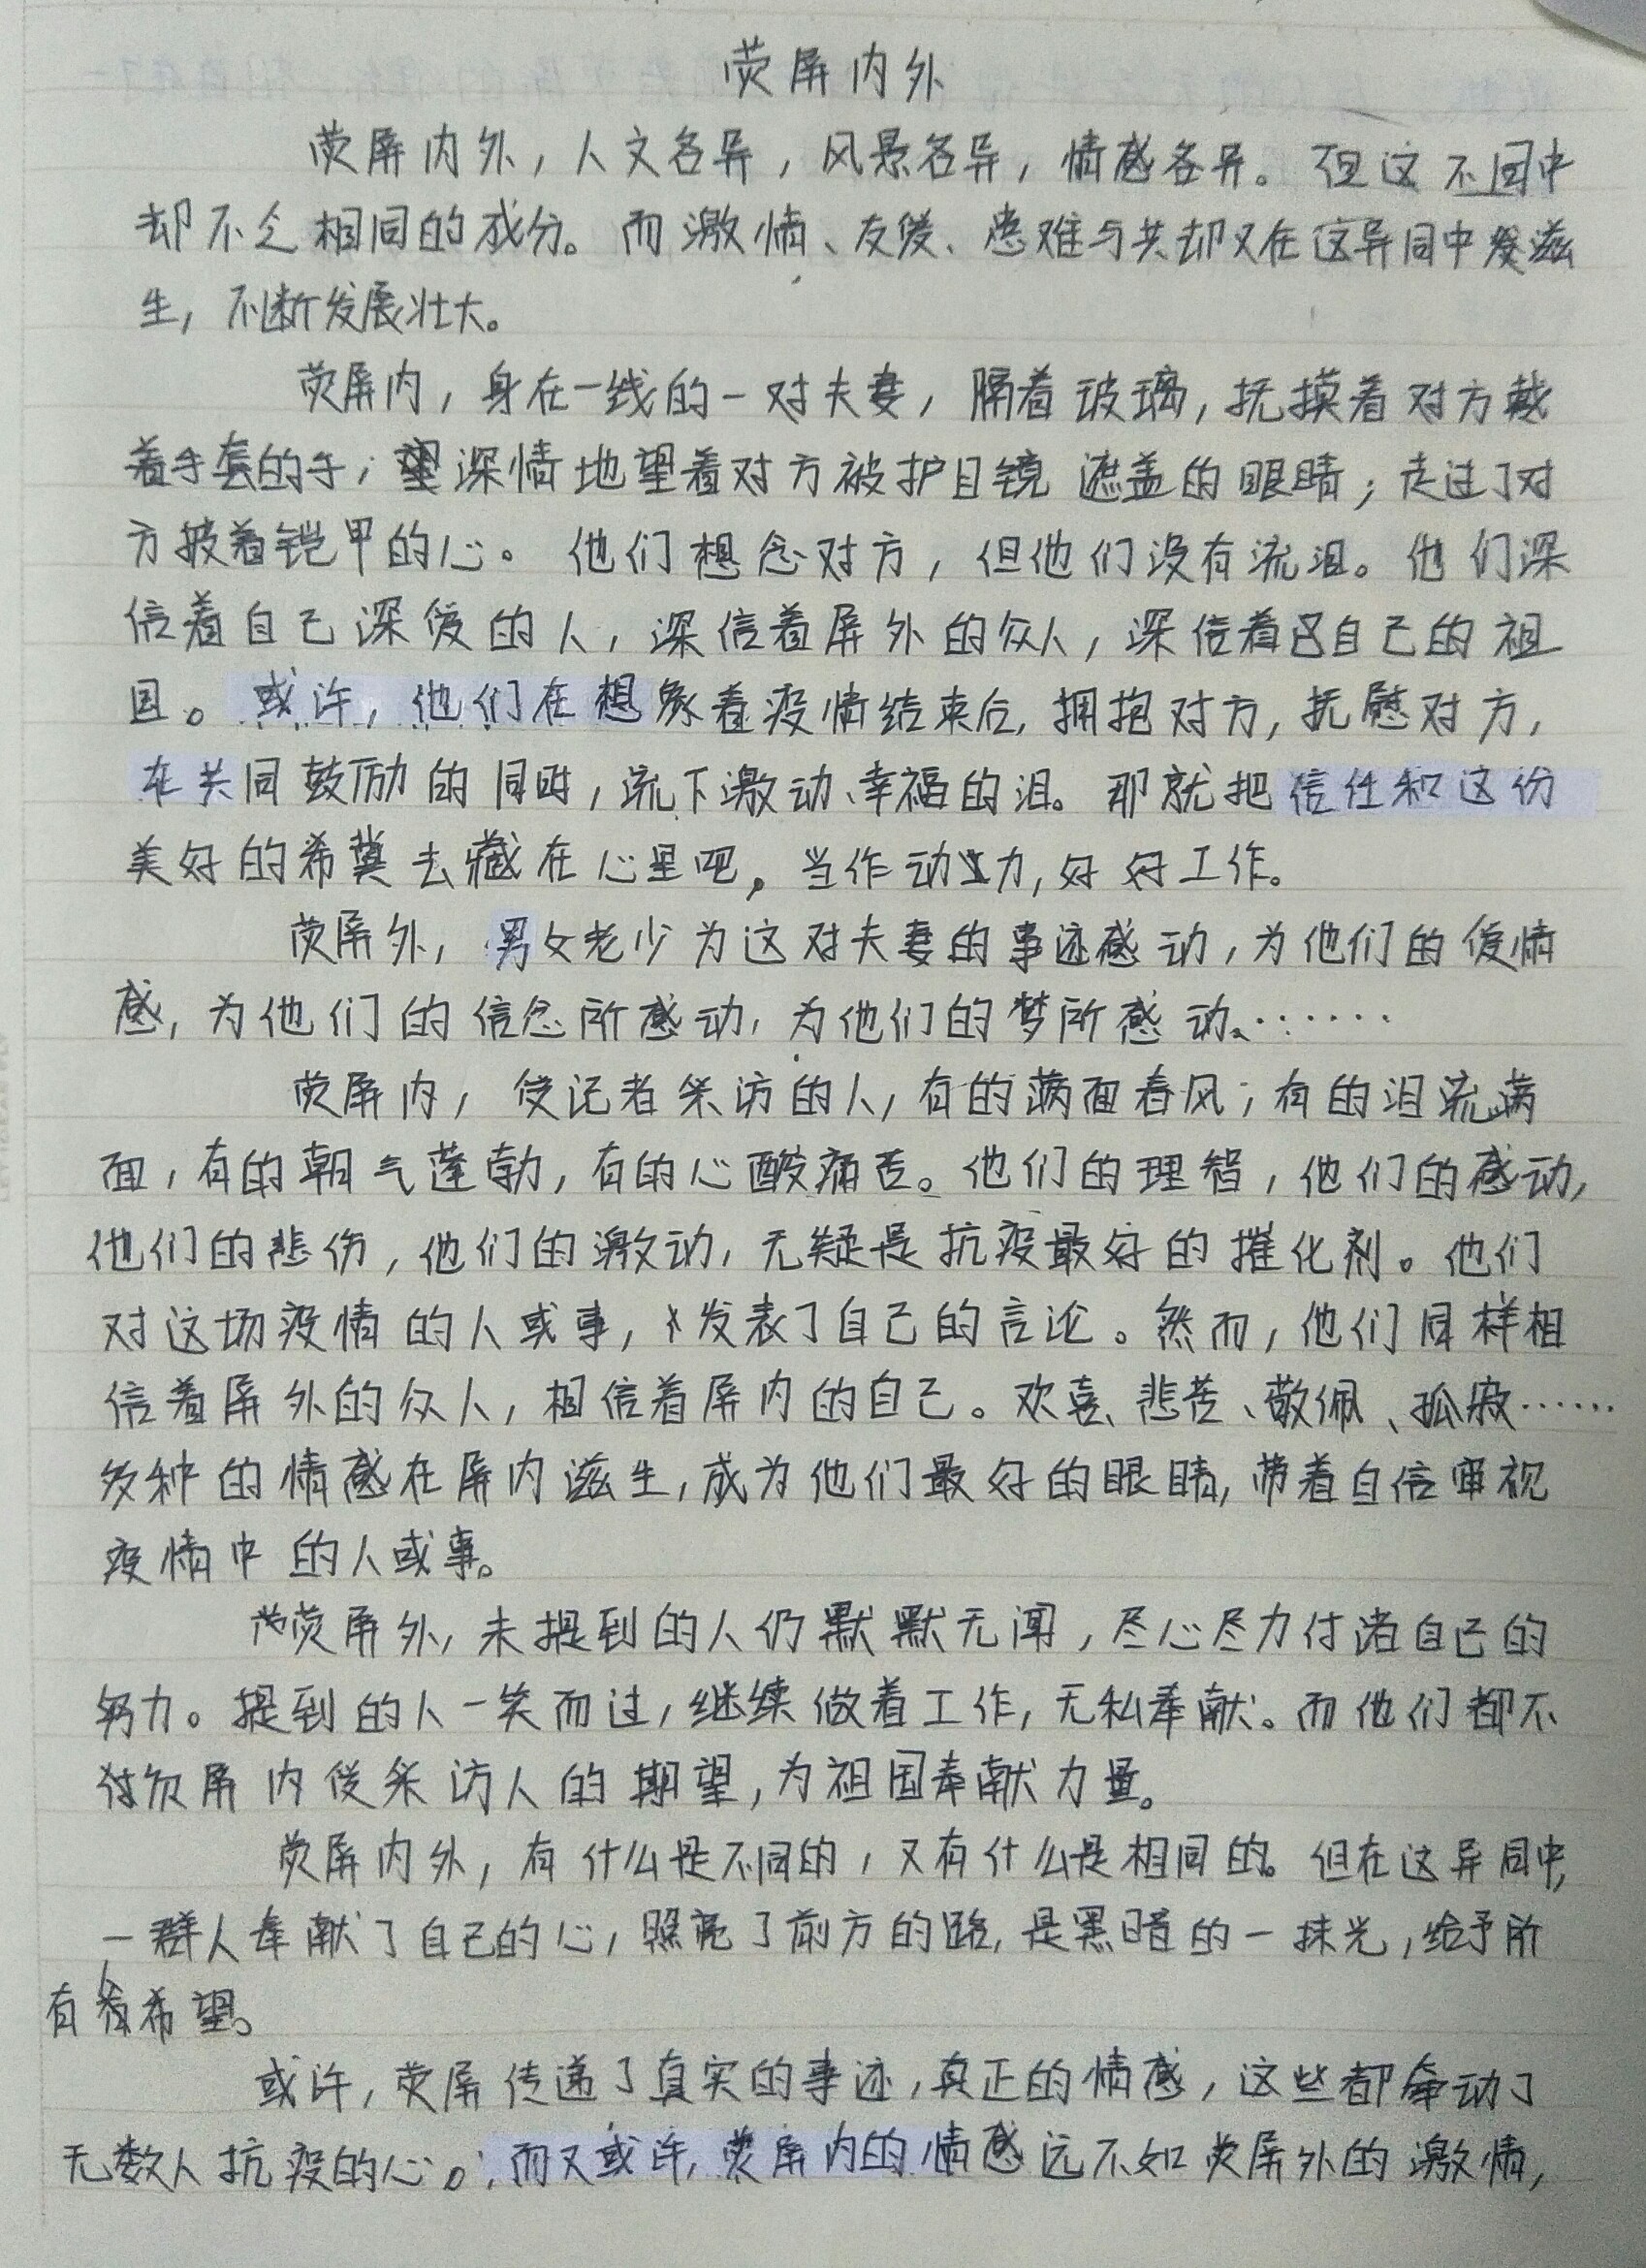 荧屏内外
荧屏内外，人文各异，风景各异，情感各异。但这不同中
却不乏相同的成分。而激情、友爱、患难与共却又在这异同中滋
生，不断发展壮大。
荧屏内，身在一线的一对夫妻，隔着玻璃，抚摸着对方戴
着手套的手；深情地望着对方被护目镜遮盖的眼睛；走过了对
方披着铠甲的心。他们想念对方，但他们没有流泪。他们深
信着自己深爱的人，深信着屏外的众人，深信着自己的祖
国。或许，他们在想象着疫情结束后，拥抱对方，抚慰对方，
在共同鼓励的同时，流下激动、幸福的泪。那就把信任和这份
美好的希冀去藏在心里吧，当作动力，好好工作。
荧屏外，男女老少为这对夫妻的事迹感动，为他们的爱情
感，为他们的信念所感动，为他们的梦所感动、……
荧屏内，受记者采访的人，有的满面春风；有的泪流满
面，有的朝气蓬勃，有的心酸痛苦。他们的理智，他们的感动，
他们的悲伤，他们的激动，无疑是抗疫最好的摧化剂。他们
对这场疫情的人或事，发表了自己的言论。然而，他们同样相
信着屏外的众人，相信着屏内的自己。欢喜、悲苦、敬佩、孤寂……
多种的情感在屏内滋生，成为他们最好的眼睛，带着自信审视
疫情中的人或事。
荧屏外，未提到的人仍默默无闻，尽心尽力付诸自己的
努力。提到的人一笑而过，继续做着工作，无私奉献。而他们都不
负屏内受采访人的期望，为祖国奉献力量。
荧屏内外，有什么是不同的，又有什么是相同的。但在这异同中，
一群人奉献了自己的心，照亮了前方的路，是黑暗的一抹光，给予所
有人希望。
或许，荧屏传递了真实的事迹，真正的情感，这些都牵动了
无数人抗疫的心。而又或许，荧屏内的情感远不如荧屏外的激情，